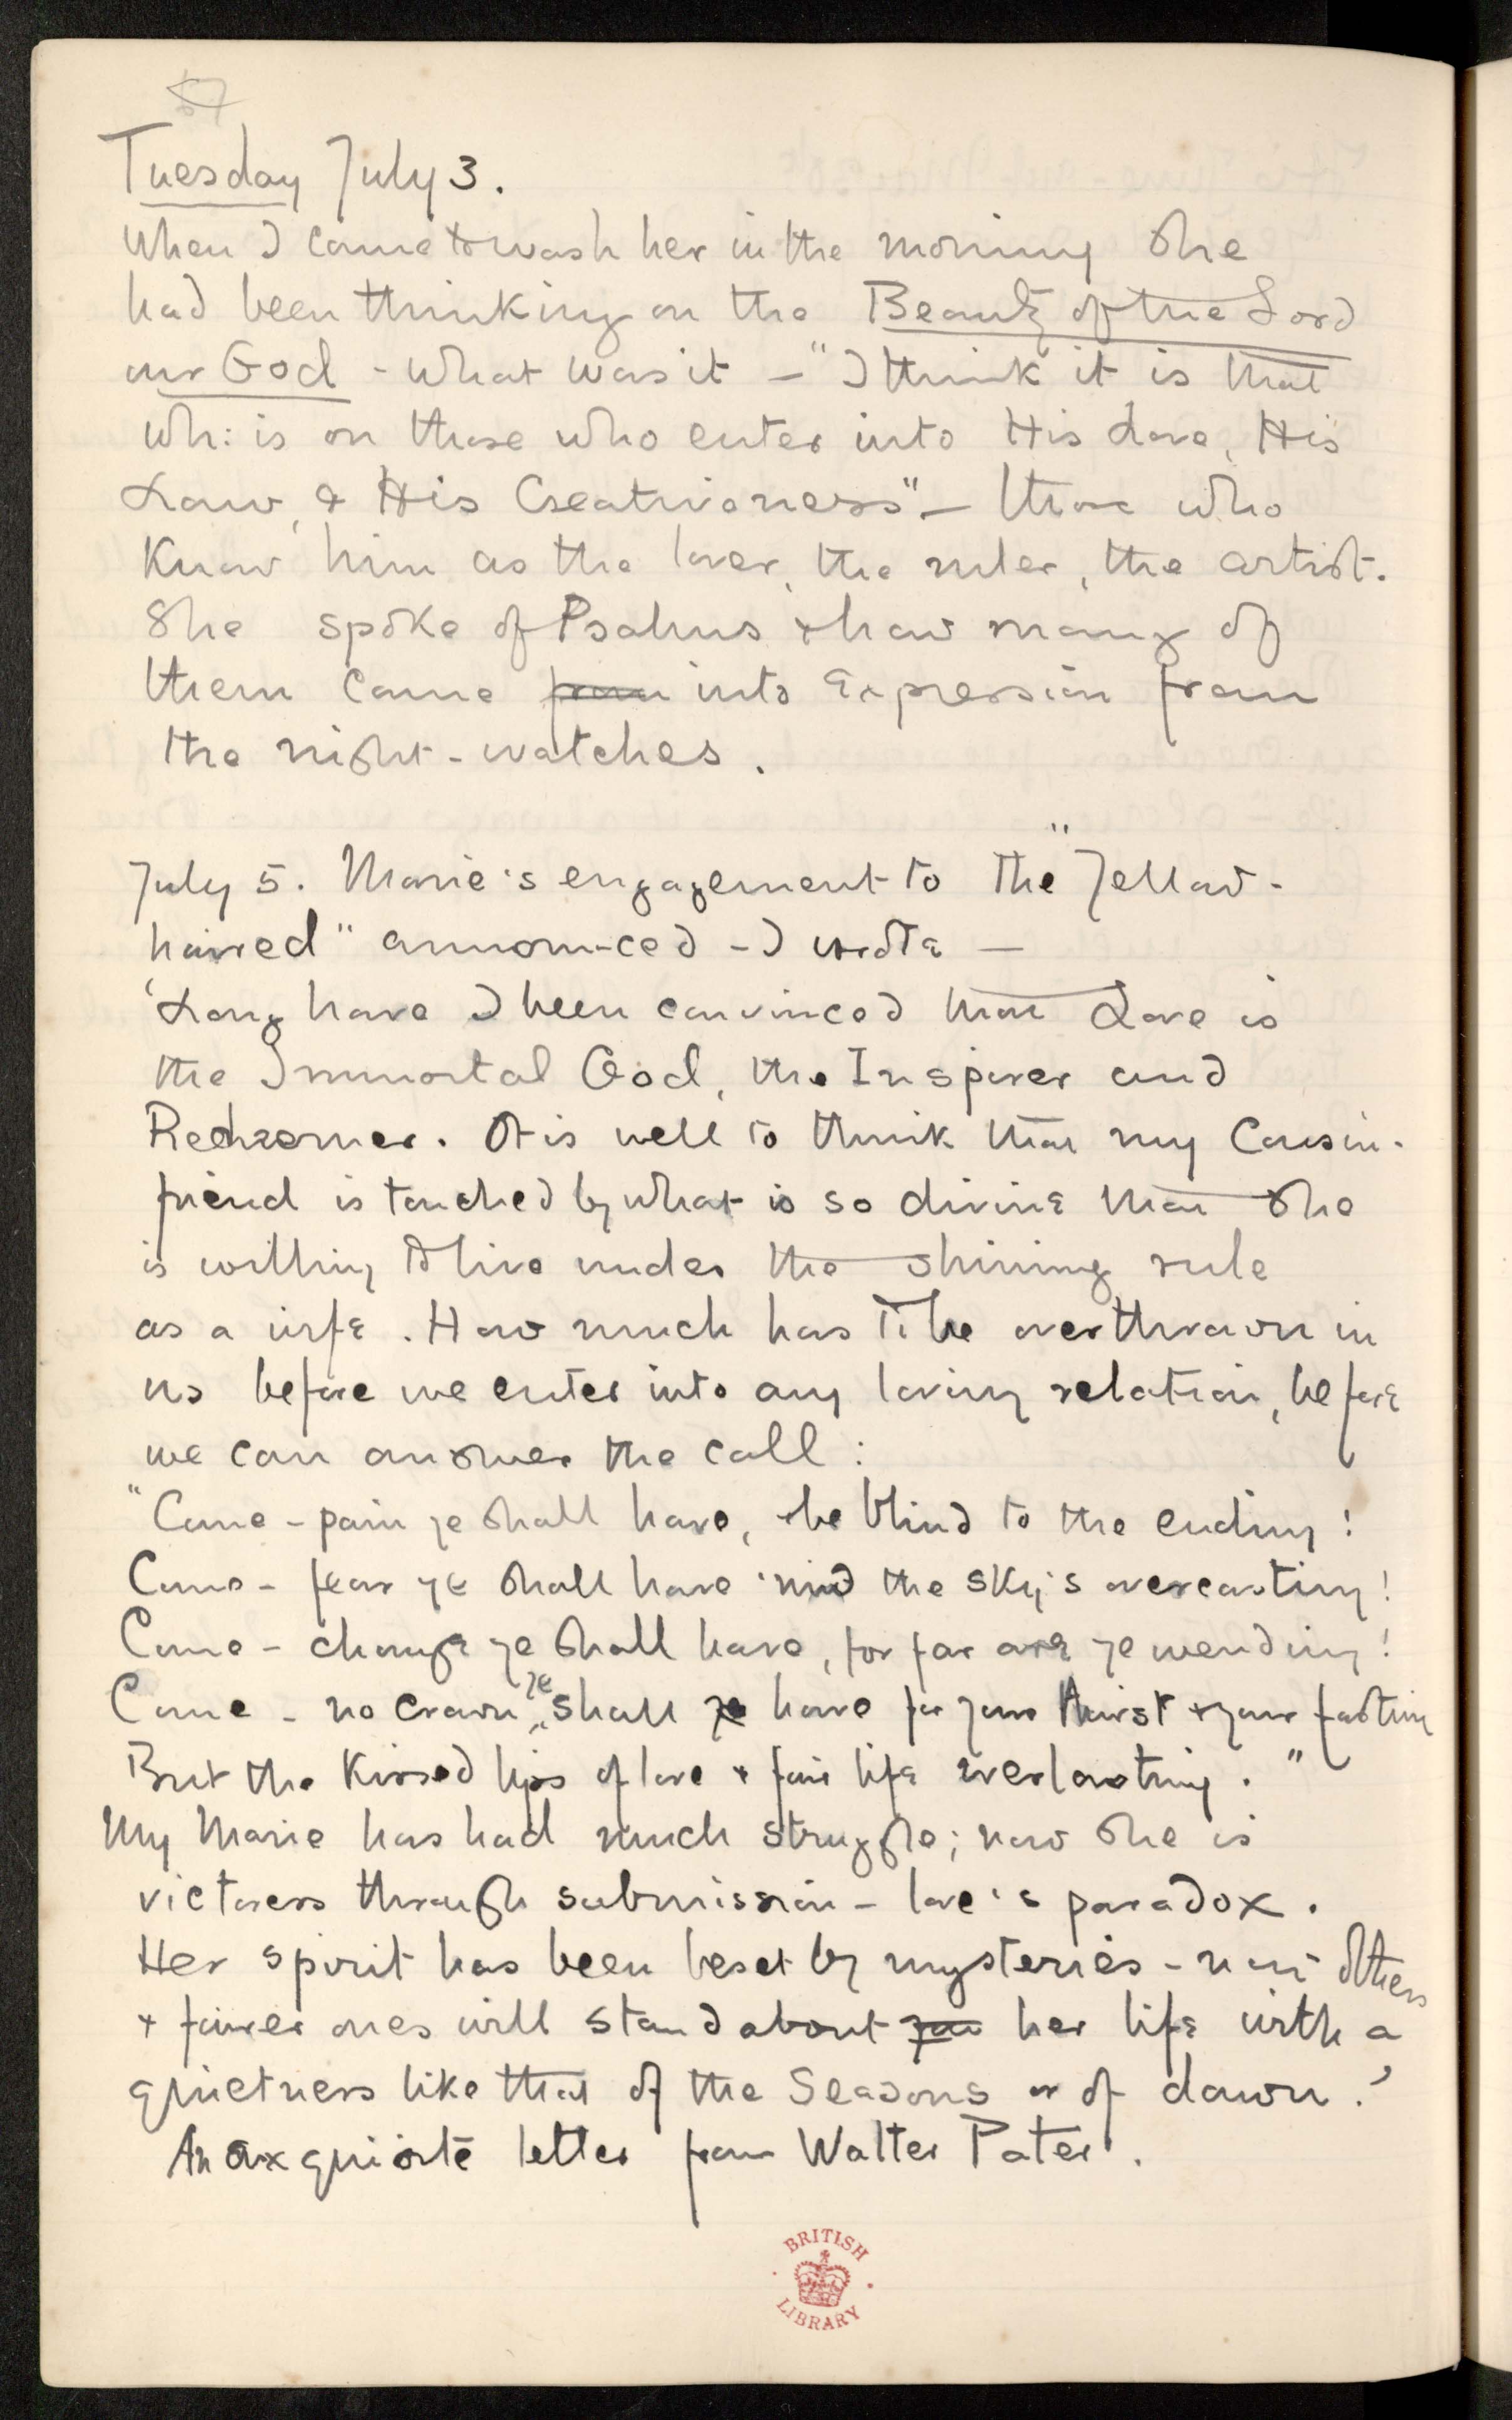 Tuesday July 3.
When I came to wash her in the morning she
had been thinking on the Beauty of the Lord
our God - what was it - "I think it is that
wh: is on those who enter into His Love, His
Law, & His Creativeness" - those who
know him as the lover, the ruler, the artist.
She spoke of Psalms & how many of
them came from into expression from
the night-watches.
July 5. Marie's engagement to the "Yellow-
haired" announced - I wrote —
'Long have I been convinced that Love is
the Immortal God, the Inspirer and
Redeemer. It is well to think that my Cousin-
friend is touched by what is so divine that she
is willing to live under the shining rule
as a wife. How much has to be overthrown in
us before we enter into any loving relation, before
we can answer the call:
"Come - pain ye shall have, & be blind to the ending!
Come - fear ye shall have 'mid the sky's overcasting!
Come - change ye shall have, for far are ye wending!
Come - no crown ye shall ye have for your thirst & your fasting
But the kissed lips of love & fair life everlasting."
My Marie has had much struggle; now she is
victoress through submission - love's paradox.
Her spirit has been beset by mysteries - now others
& fairer ones will stand about you her life with a
quietness like that of the Seasons or of dawn.'
An exquisite letter from Walter Pater.
BRITISH
LIBRARY